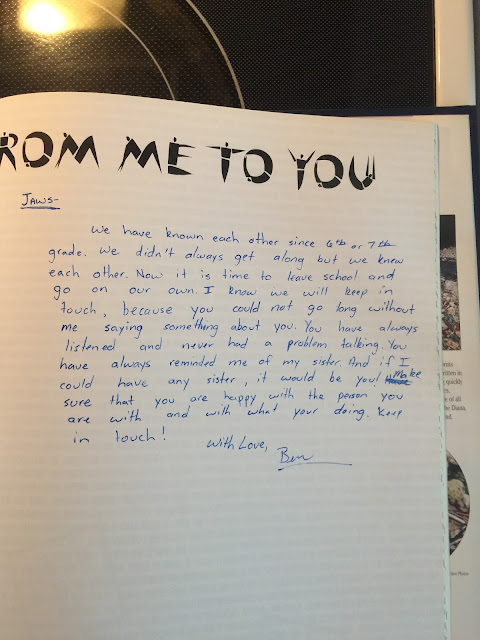 ROM ME TO YOU
JAWS-
We have known each other since 6th or 7th
grade. We didn't always get along but we knew
each other. Now it is time to leave school and
go on our own. I know we will keep in
touch, because you could not go long without
me saying something about you. You have always
listened and never had a problem talking. You
have always reminded me of my sister. And if I
could have any sister, it would be you! Make
sure that you are happy with the person you
are with and with what your doing. Keep
in touch!
With Love,
Ben
quickly
of all